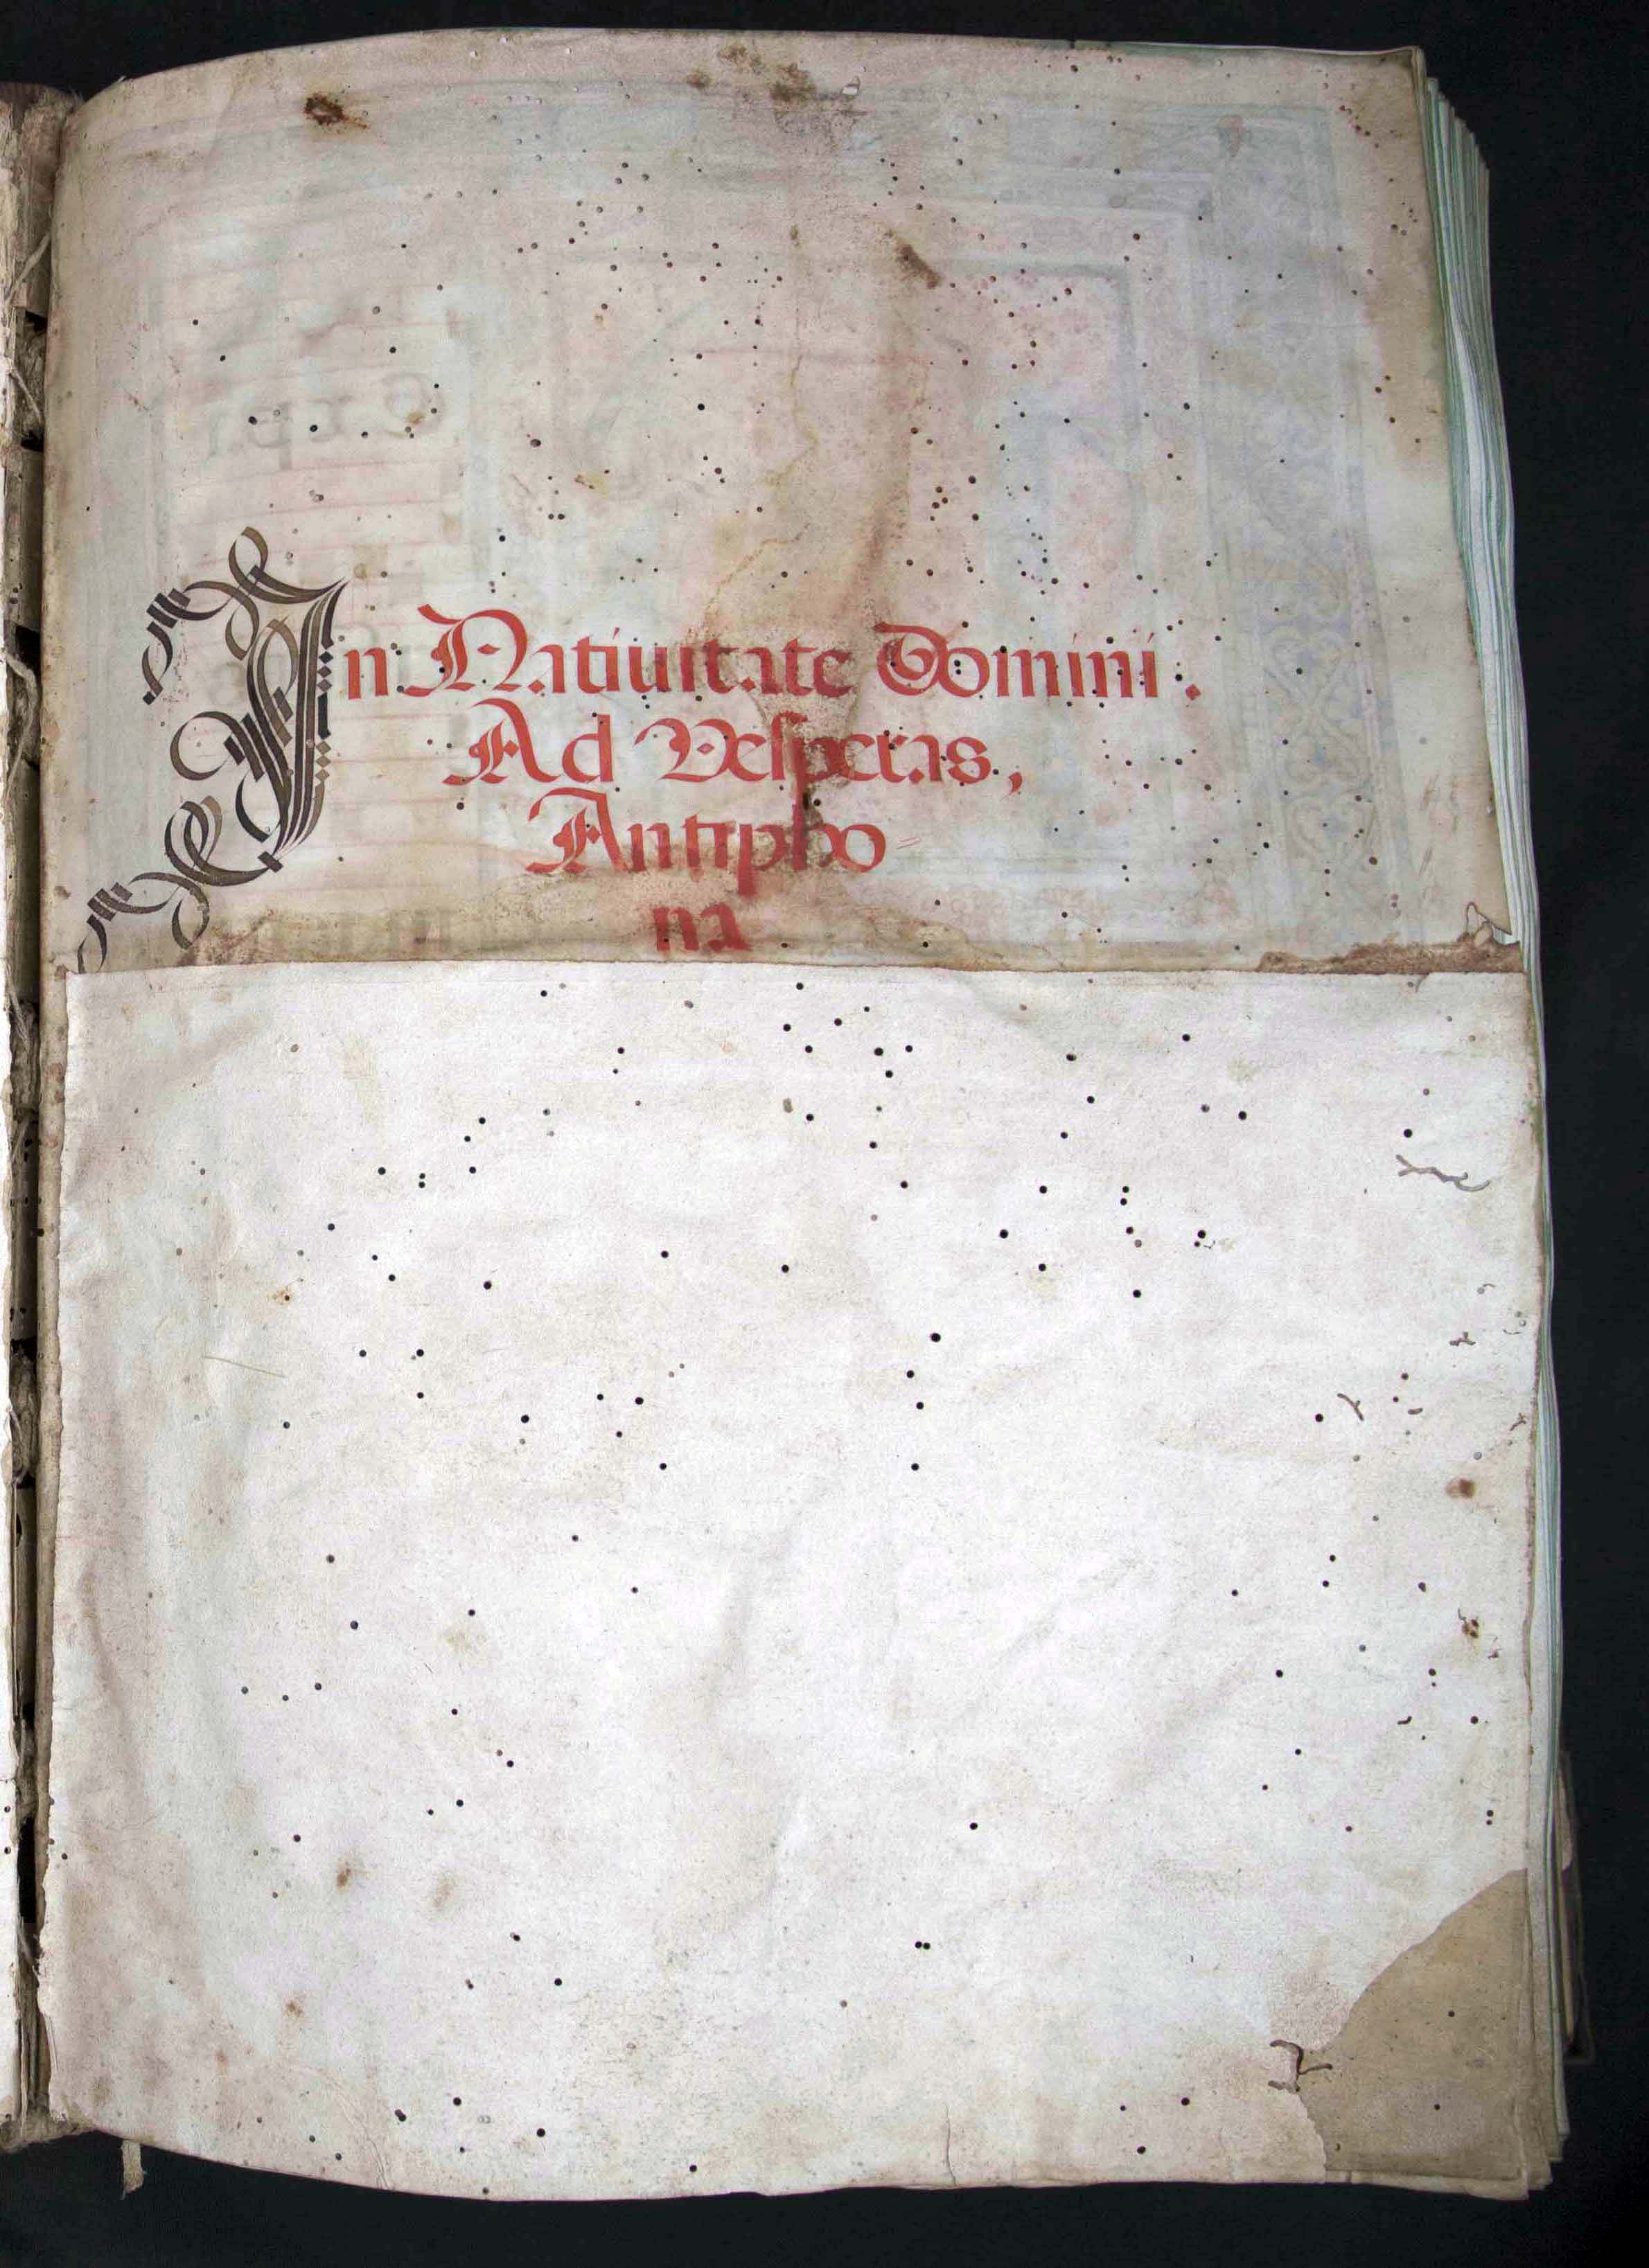 In Natiuitate Domini.
Ad Veſperas,
Antipho=
na